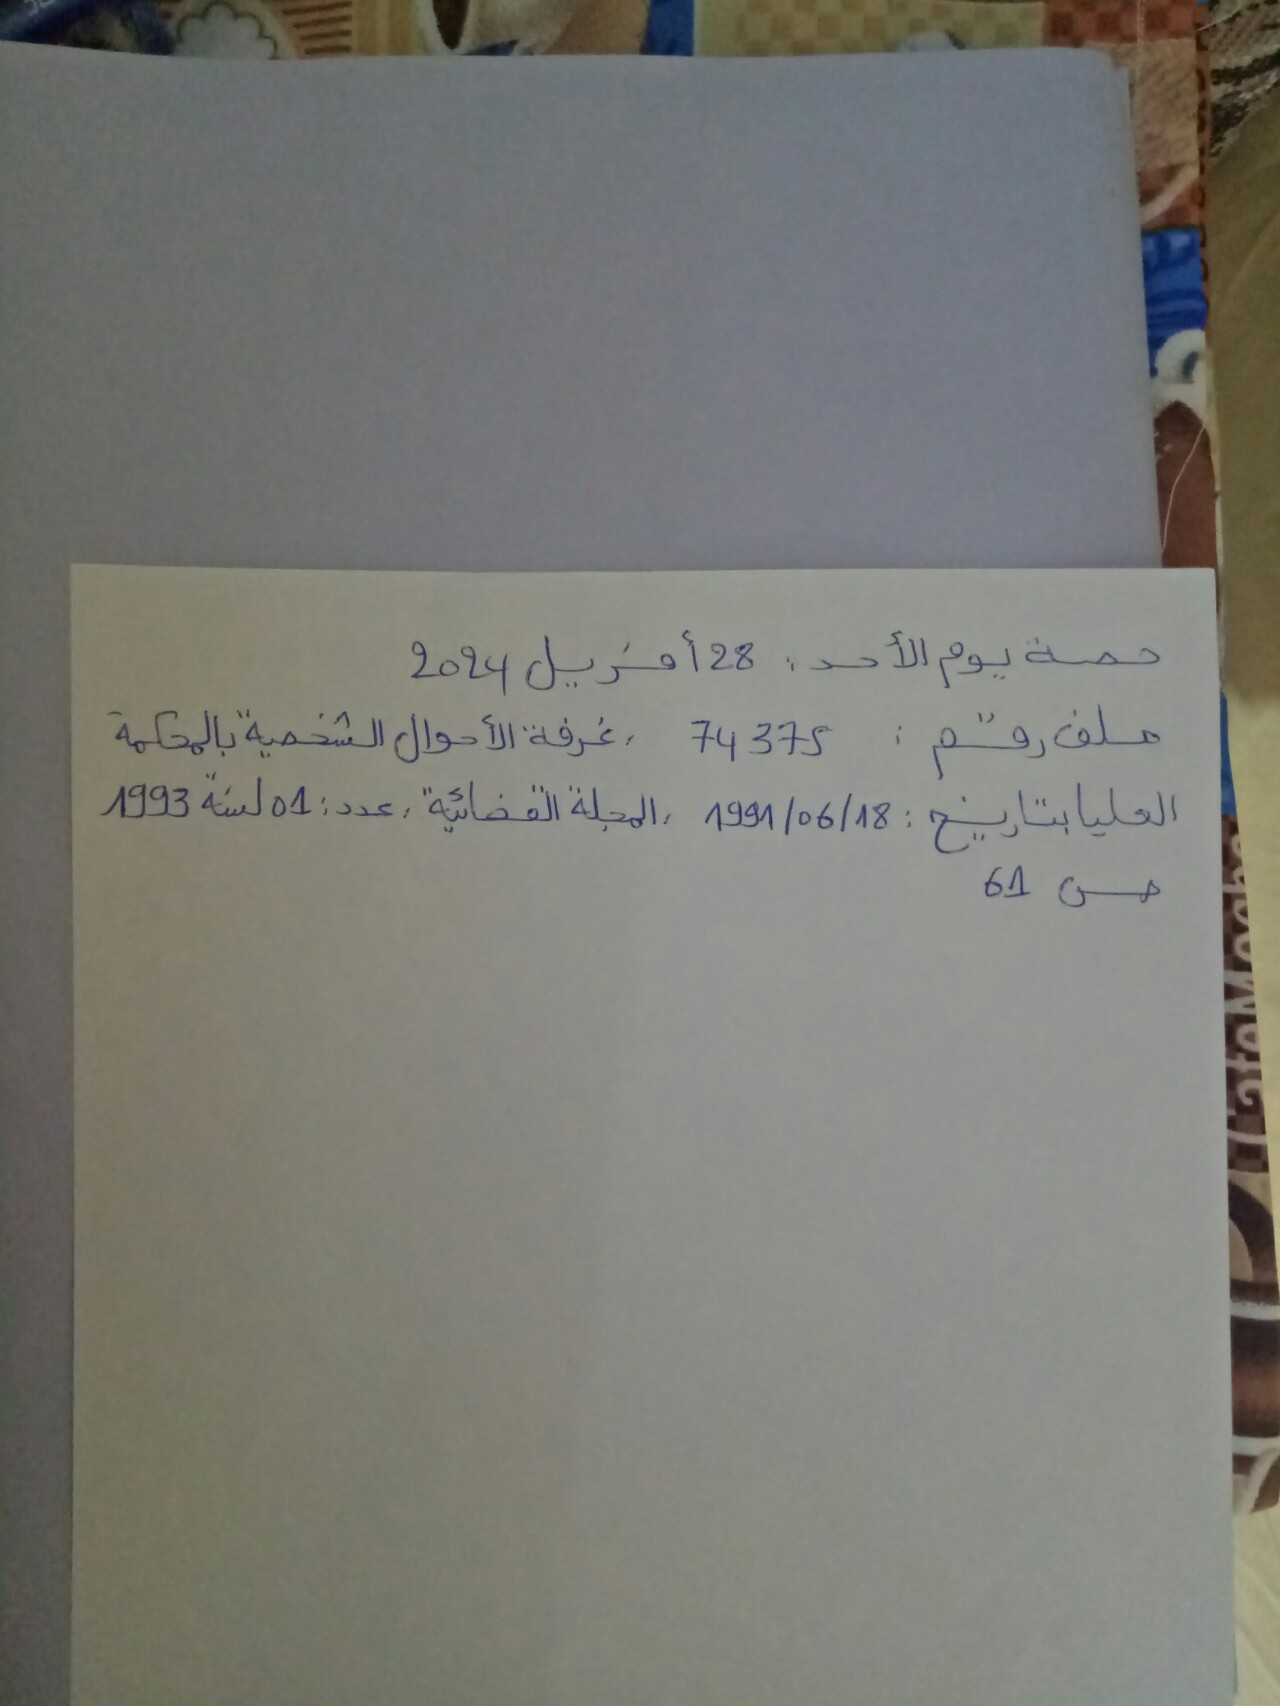 حصة يوم الأحد : 28 أفريل 2024
ملف رقم : 74375 ، غرفة الأحوال الشخصية بالمحكمة
العليا بتاريخ : 1991/06/18 ، المجلة القضائية ، عدد : 01 لسنة 1993
ص 61